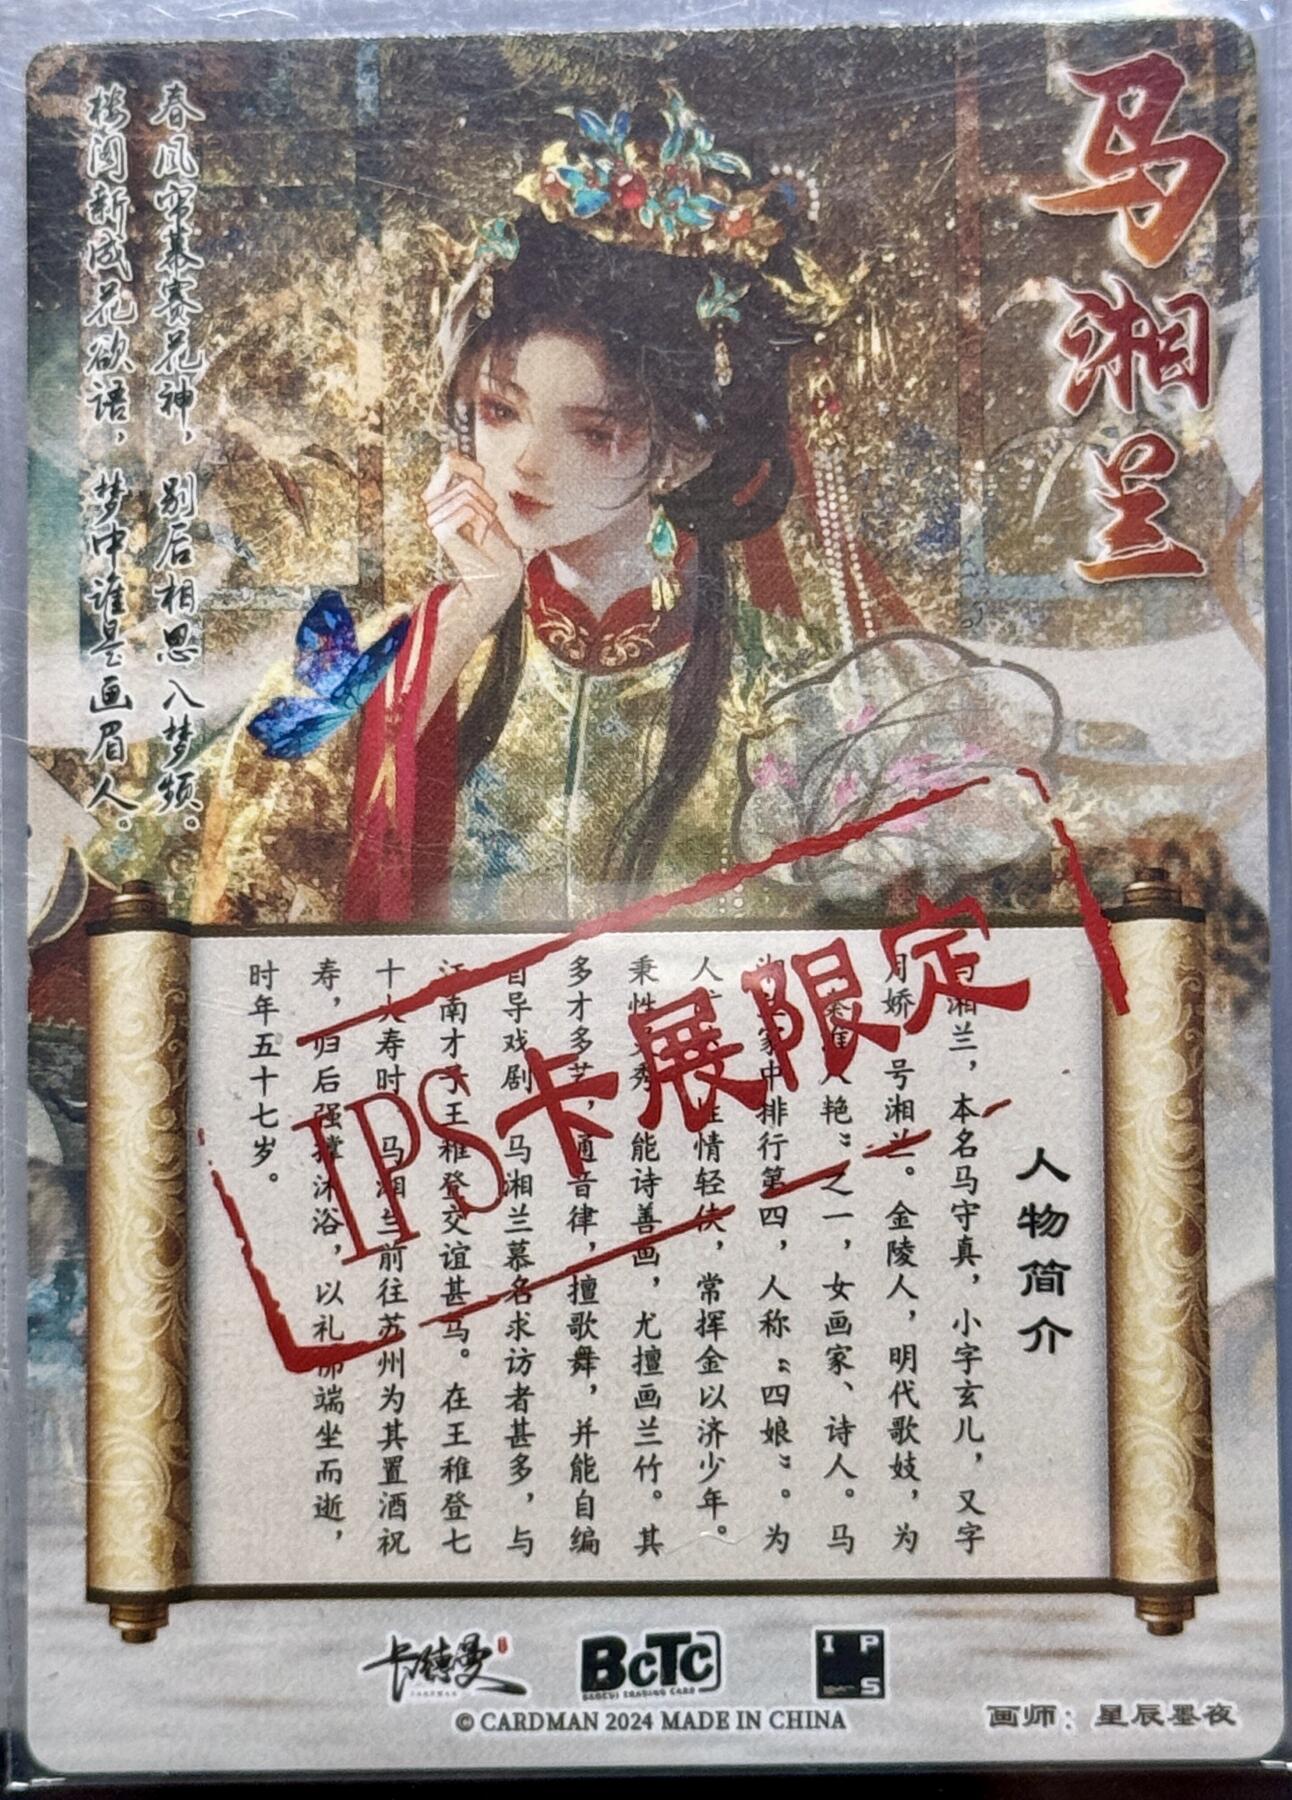 马湘兰
春风帘幕赛花神，别后相思入梦频。
楼阁新成花欲语，梦中谁是画眉人。
人物简介
马湘兰，本名马守真，小字玄儿，又字
月娇，号湘兰。金陵人，明代歌妓，为
“秦淮八艳”之一，女画家、诗人。马
湘兰家中排行第四，人称“四娘”。为
人旷达，性情轻侠，常挥金以济少年。
秉性灵秀，能诗善画，尤擅画兰竹。其
多才多艺，通音律，擅歌舞，并能自编
自导戏剧，马湘兰慕名求访者甚多，与
江南才子王稚登交谊甚笃。在王稚登七
十大寿时，马湘兰前往苏州为其置酒祝
寿，归后强撑沐浴，以礼佛端坐而逝，
时年五十七岁。
IPS卡展限定
卡德曼
BCTC
IPS
© CARDMAN 2024 MADE IN CHINA
画师：星辰墨夜